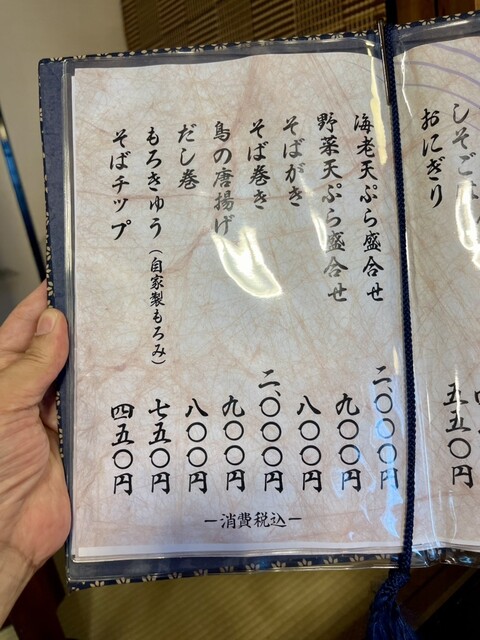 しそご
おにぎり 五五〇円
海老天ぷら盛合せ 二、〇〇〇円
野菜天ぷら盛合せ 九〇〇円
そばがき 八〇〇円
そば巻き 二、〇〇〇円
鳥の唐揚げ 九〇〇円
だし巻 八〇〇円
もろきゅう（自家製もろみ） 七五〇円
そばチップ 四五〇円
ー消費税込ー